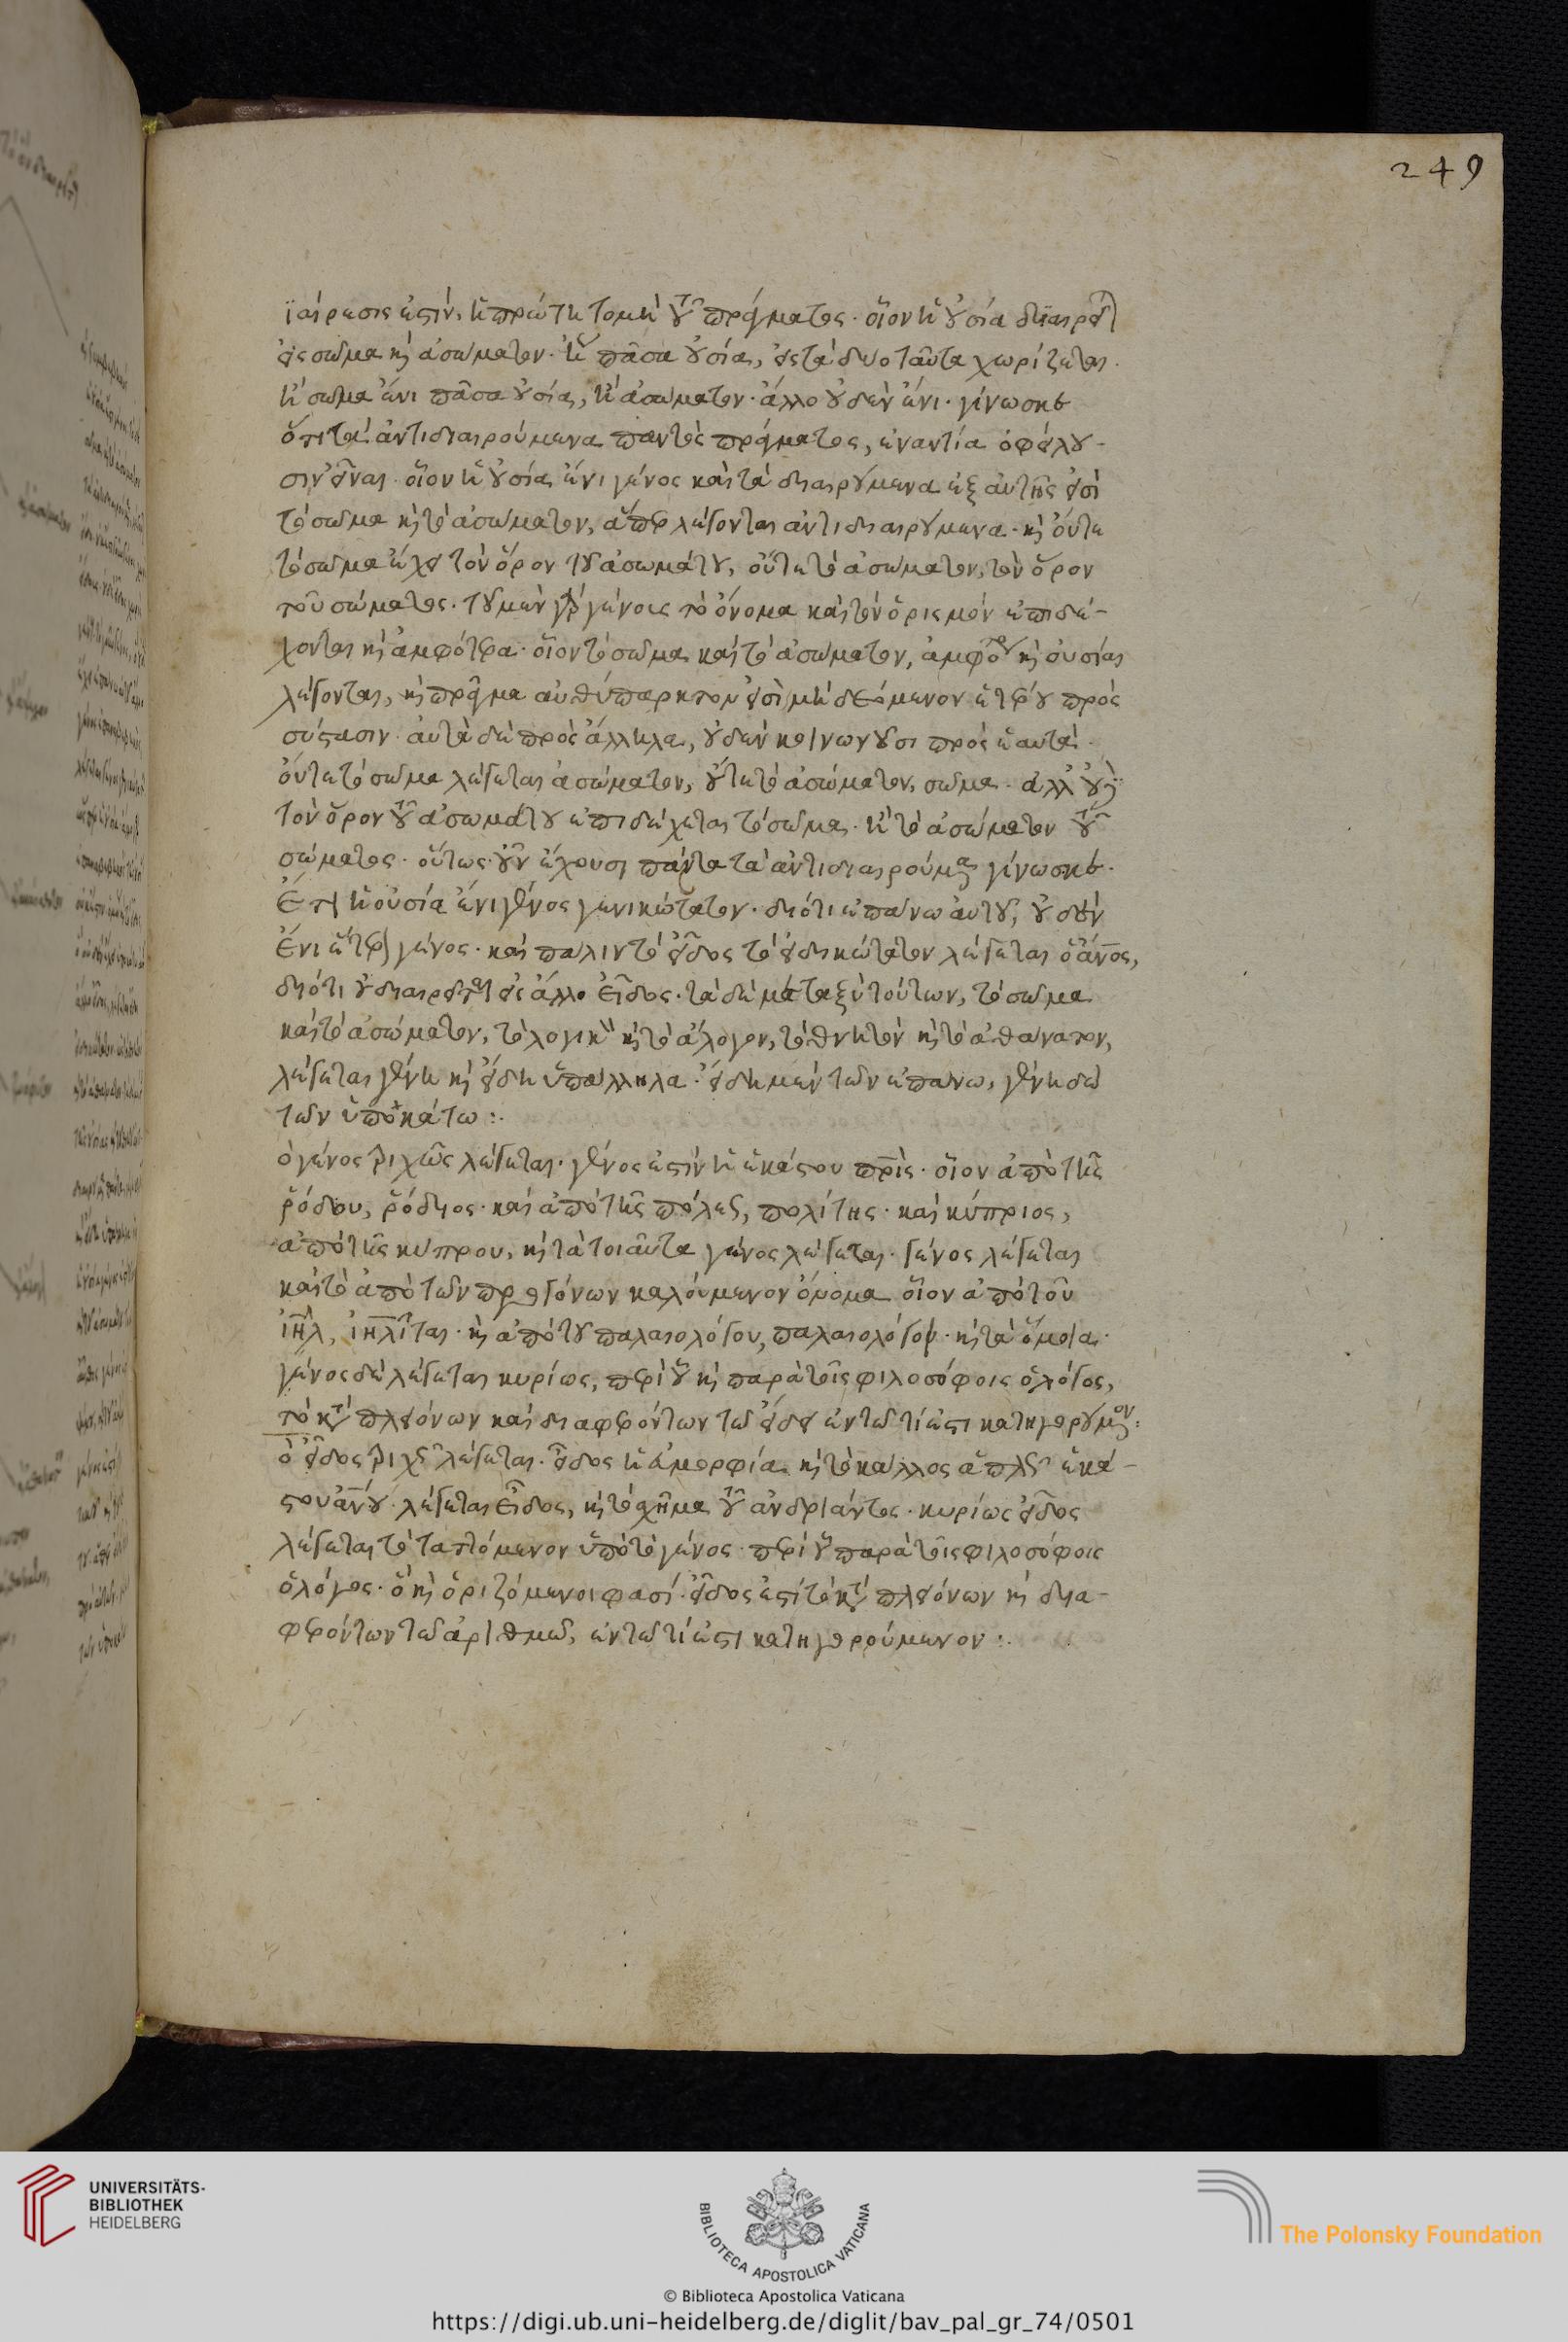 249
ϊαίρεσις ἐστίν, ἡ πρώτη τομὴ τοῦ πράγματος. οἷον ἡ οὐσία διαιρεῖται
εἰς σῶμα καὶ ἀσώματον. ἡ πᾶσα οὐσία, εἰς τὰ δύο ταῦτα χωρίζεται.
ἢ σῶμα ἔνι πᾶσα οὐσία, ἢ ἀσώματον. ἄλλο οὐδὲν ἔνι. γίνωσκε
ὅτι τὰ ἀντιδιαιρούμενα παντὸς πράγματος, ἐναντία ὀφείλου-
σιν εἶναι. οἷον ἡ οὐσία ἔνι γένος καὶ τὰ διαιρούμενα ἐξ αὐτῆς εἰσὶ
τὸ σῶμα καὶ τὸ ἀσώματον, ἅπερ λέγονται ἀντιδιαιρούμενα. καὶ οὔτε
τὸ σῶμα ἔχει τὸν ὅρον τοῦ ἀσωμάτου, οὔτε τὸ ἀσώματον, τὸν ὅρον
τοῦ σώματος. τοῦ μὲν γὰρ γένους τὸ ὄνομα καὶ τὸν ὁρισμὸν ἐπιδέ-
χονται καὶ ἀμφότερα. οἷον τὸ σῶμα καὶ τὸ ἀσώματον, ἀμφότερα καὶ οὐσίαι
λέγονται, καὶ πρᾶγμα αὐθύπαρκτον εἰσὶ μὴ δεόμενον ἑτέρου πρὸς
σύστασιν. αὐτὰ δὲ πρὸς ἄλληλα, οὐδὲν κοινωνοῦσι πρὸς ἑαυτά.
οὔτε τὸ σῶμα λέγεται ἀσώματον, οὔτε τὸ ἀσώματον, σῶμα. ἀλλ' οὐδὲ
τὸν ὅρον τοῦ ἀσωμάτου ἐπιδέχεται τὸ σῶμα. ἢ τὸ ἀσώματον τοῦ
σώματος. οὕτως οὖν ἔχουσι πάντα τὰ ἀντιδιαιρούμενα γίνωσκε.
Ἔτι ἡ οὐσία ἔνι γένος γενικώτατον. διότι ἐπάνω αὐτοῦ, οὐδὲν
ἔνι ἕτερον γένος. καὶ πάλιν τὸ εἶδος τὸ εἰδικώτατον λέγεται ὁ ἄνος,
διότι οὐ διαιρεῖται εἰς ἄλλο εἶδος. τὰ δὲ μεταξὺ τούτων, τὸ σῶμα
καὶ τὸ ἀσώματον, τὸ λογικὸν καὶ τὸ ἄλογον, τὸ θνητὸν καὶ τὸ ἀθάνατον,
λέγεται γένη καὶ εἴδη ὑπάλληλα. εἴδη μὲν τῶν ἐπάνω, γένη δὲ
τῶν ὑποκάτω:.
ὁ γένος τριχῶς λέγεται. γένος ἐστὶν ἡ ἑκάστου πρὶς. οἷον ἀπὸ τῆς
ῥόδου, ῥόδιος. καὶ ἀπὸ τῆς πόλεως, πολίτης. καὶ κύπριος,
ἀπὸ τῆς κύπρου, καὶ τὰ τοιαῦτα γένος λέγεται. γένος λέγεται
καὶ τὸ ἀπὸ τῶν προγόνων καλούμενον ὄνομα οἷον ἀπὸ τοῦ
ιηλ, ιηλῖται. καὶ ἀπὸ τοῦ παλαιολόγου, παλαιολόγοι. καὶ τὰ ὅμοια.
γένος δὲ λέγεται κυρίως, περὶ οὗ καὶ παρὰ τοῖς φιλοσόφοις ὁ λόγος,
τὸ κατὰ πλειόνων καὶ διαφερόντων τῷ εἴδει ἐν τῷ τί ἐστι κατηγορούμενον:
ὁ εἶδος τριχῶς λέγεται. εἶδος ἡ εὐμορφία καὶ τὸ κάλλος ἁπλῶς ἑκά-
στου ἀνου. λέγεται εἶδος, καὶ τὸ σχῆμα τοῦ ἀνδριάντος. κυρίως εἶδος
λέγεται τὸ ταττόμενον ὑπὸ τὸ γένος. περὶ οὗ παρὰ τοῖς φιλοσόφοις
ὁ λόγος. ὃ καὶ ὁριζόμενοι φασί. εἶδος ἐστὶ τὸ κατὰ πλειόνων καὶ δια-
φερόντων τῷ ἀριθμῷ, ἐν τῷ τί ἐστι κατηγορούμενον:.
UNIVERSITÄTS-
BIBLIOTHEK
HEIDELBERG
BIBLIOTECA APOSTOLICA VATICANA
The Polonsky Foundation
© Biblioteca Apostolica Vaticana
https://digi.ub.uni-heidelberg.de/diglit/bav_pal_gr_74/0501